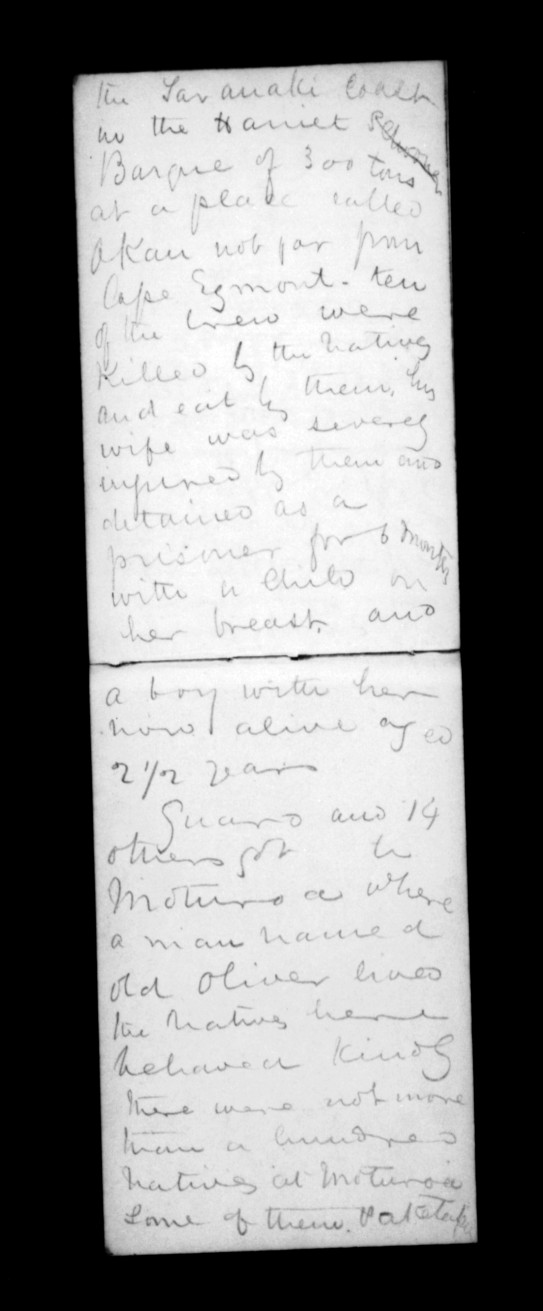 the Taranaki Coast
in the Harriet Schooner
Barque of 300 tons
at a place called
Okau not far from
Cape Egmont - ten
of the crew were
Killed by the natives
and eat by them, his
wife was severely
injured by them and
detained as a
prisoner for 6 months
with a child on
her breast. and
a boy with her
now alive aged
2 1/2 years
Guard and 14
others got to
Moturoa where
a man named
old Oliver lived
the natives here
behaved kindly
there were not more
than a hundred
natives at Moturoa
Some of them.